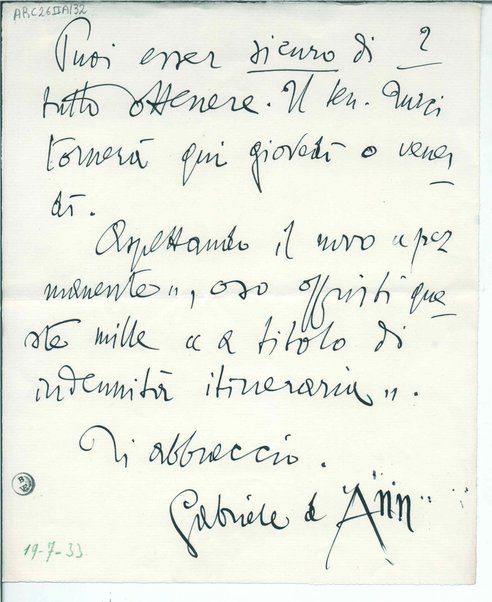 ARC26IIA/32
2
Puoi esser sicuro di
tutto ottenere. Il ten. Turci
tornerà qui giovedì o vener
dì.
Aspettando il novo « per
manente », oso offrirti que
ste mille « a titolo di
indennità itineraria ».
Ti abbraccio.
Gabriele d'Ann
19-7-33